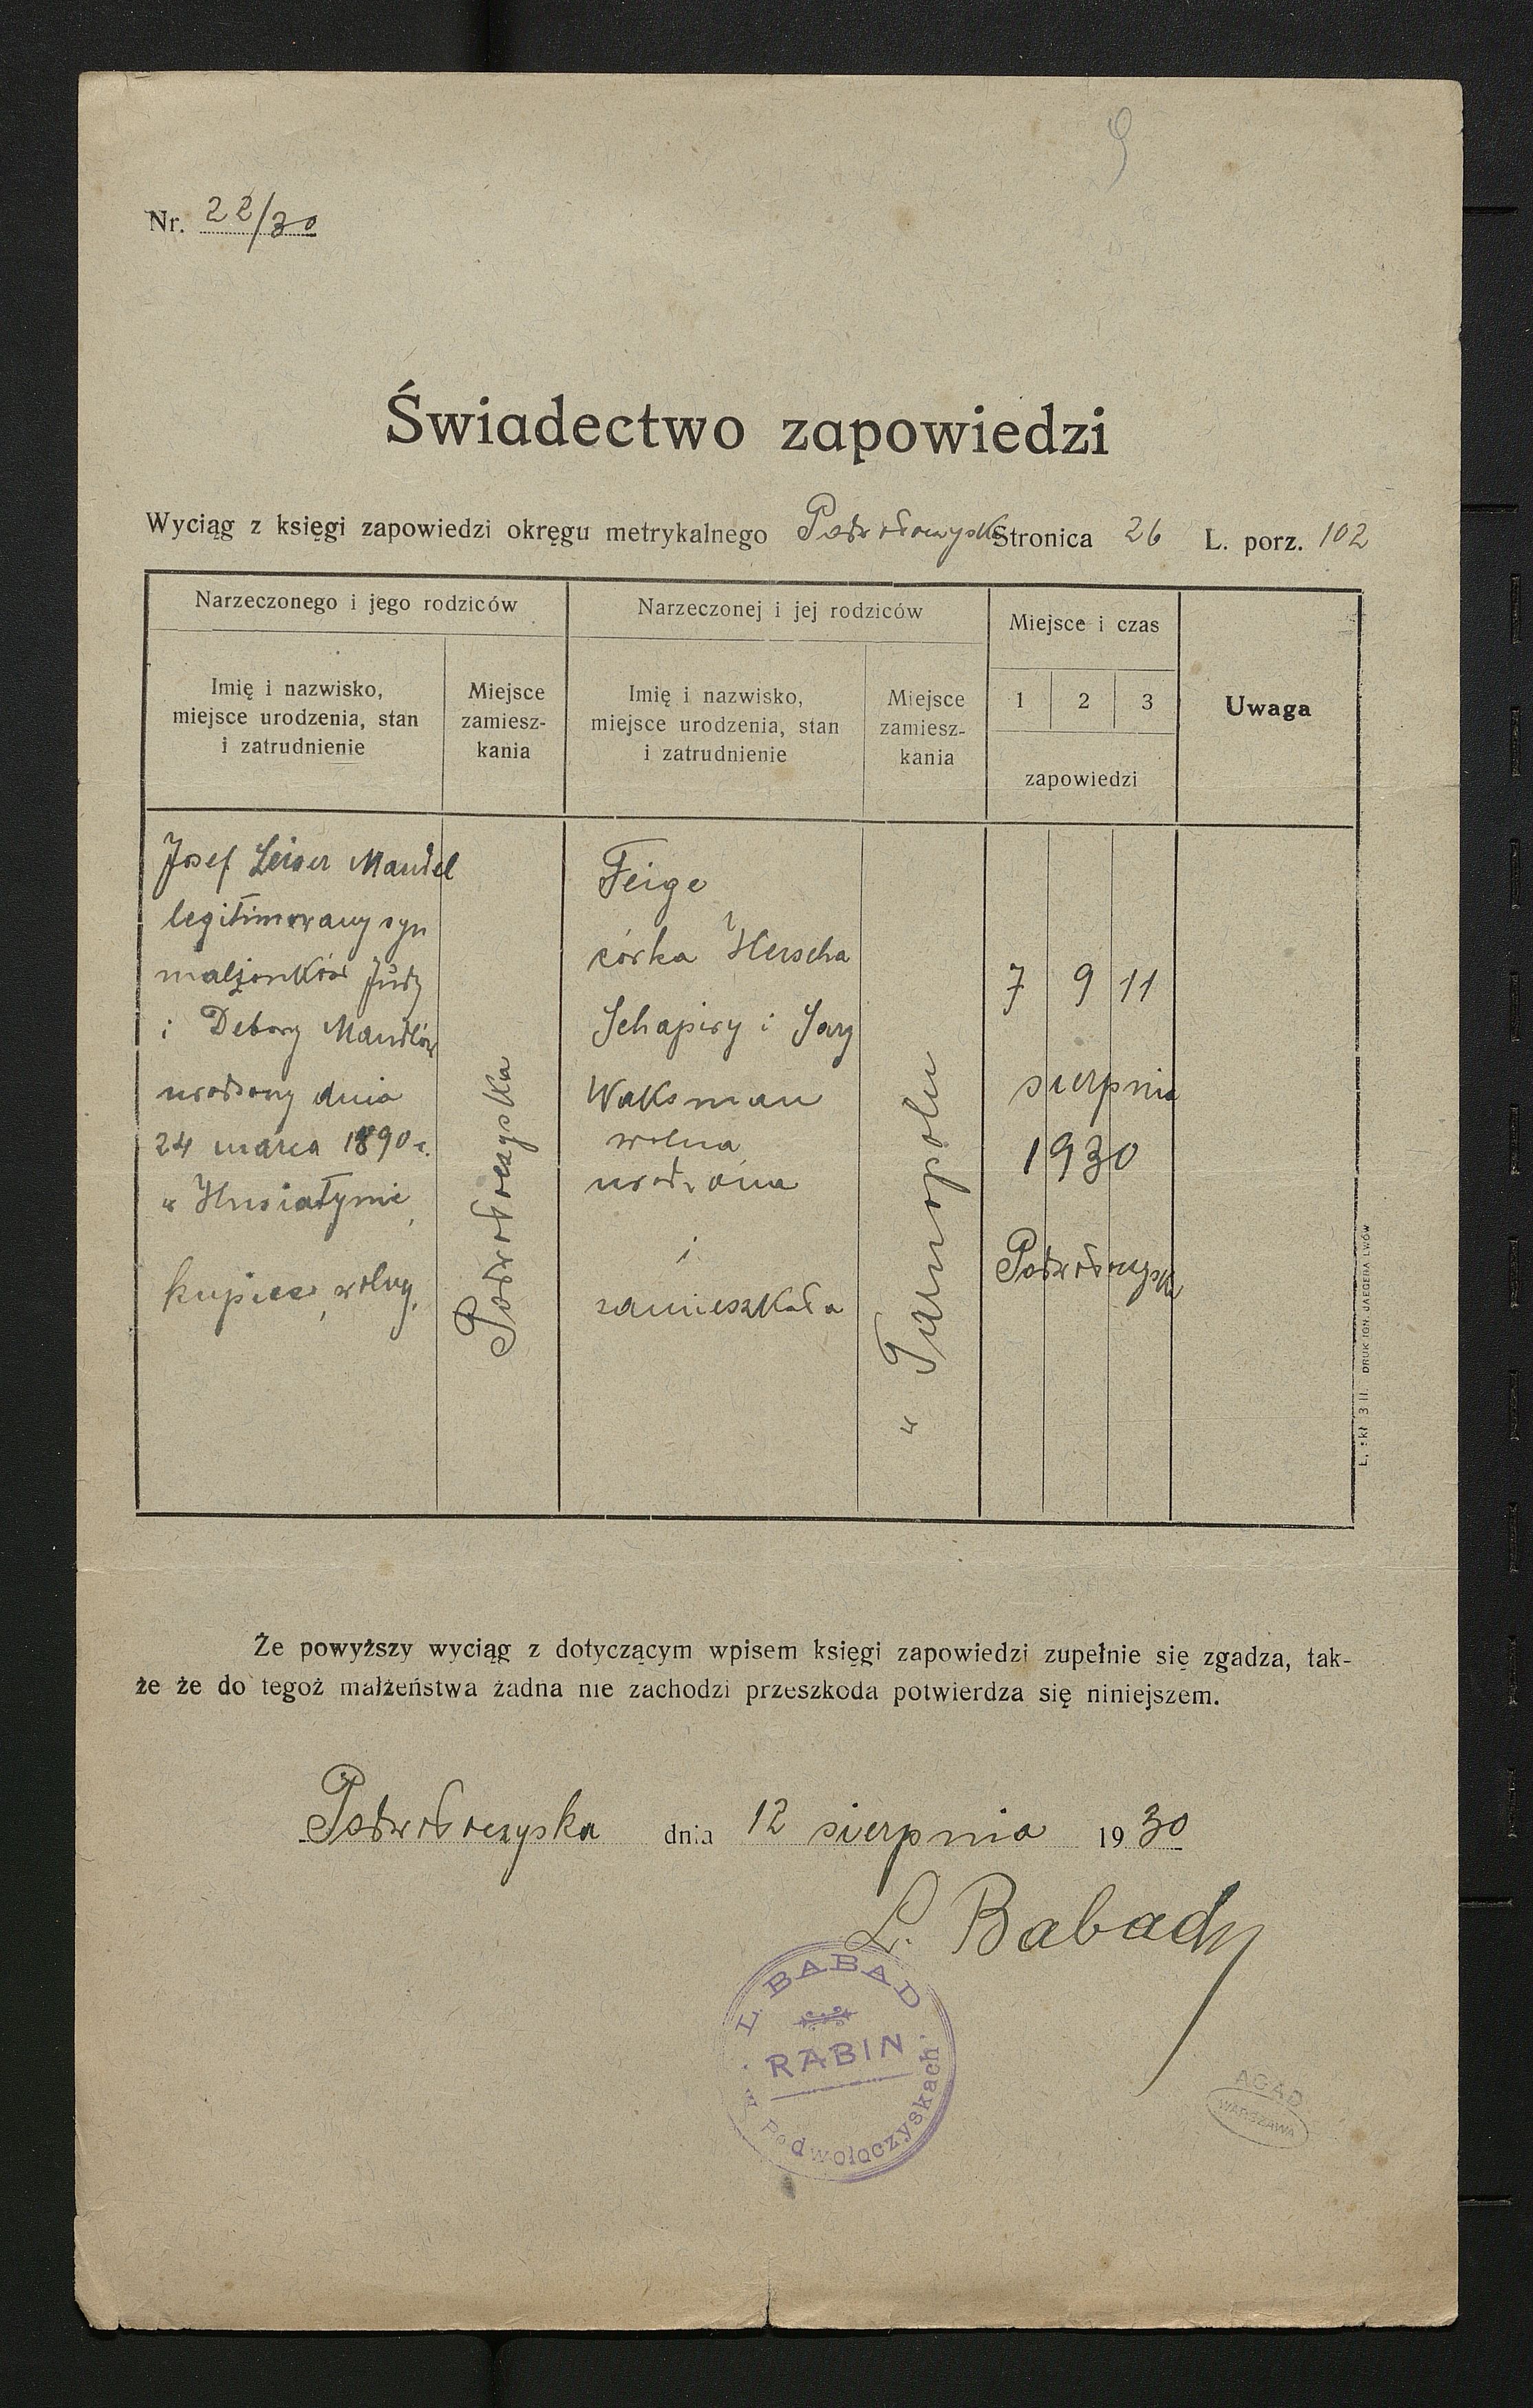 9
Nr. 22/30
Świadectwo zapowiedzi
Wyciąg z księgi zapowiedzi okręgu metrykalnego Podwołoczyska Stronica 26 L. porz. 102
Narzeczonego i jego rodziców
Narzeczonej i jej rodziców
Miejsce i czas
Uwaga
Imię i nazwisko,
miejsce urodzenia, stan
i zatrudnienie
Miejsce
zamiesz-
kania
Imię i nazwisko,
miejsce urodzenia, stan
i zatrudnienie
Miejsce
zamiesz-
kania
1 2 3
zapowiedzi
Josef Leiser Mandel
legitimowany syn
małżonków Judy
i Debory Mandlów
urodzony dnia
24 marca 1890 r.
w Husiatynie,
kupiec, wolny.
Podwołoczyska
Feige
córka Herscha
Schapiry i Sary
Waksman
wolna
urodzona
i
zamieszkała
w Tarnopolu
7 9 11
sierpnia
1930
Podwołoczyska
DRUK IGN. JAEGERA LWÓW
Że powyższy wyciąg z dotyczącym wpisem księgi zapowiedzi zupełnie się zgadza, tak-
że że do tegoż małżeństwa żadna nie zachodzi przeszkoda potwierdza się niniejszem.
Podwołoczyska dnia 12 sierpnia 1930
L. Babad
L. BABAD
RABIN
w Podwołoczyskach
AGAD
WARSZAWA